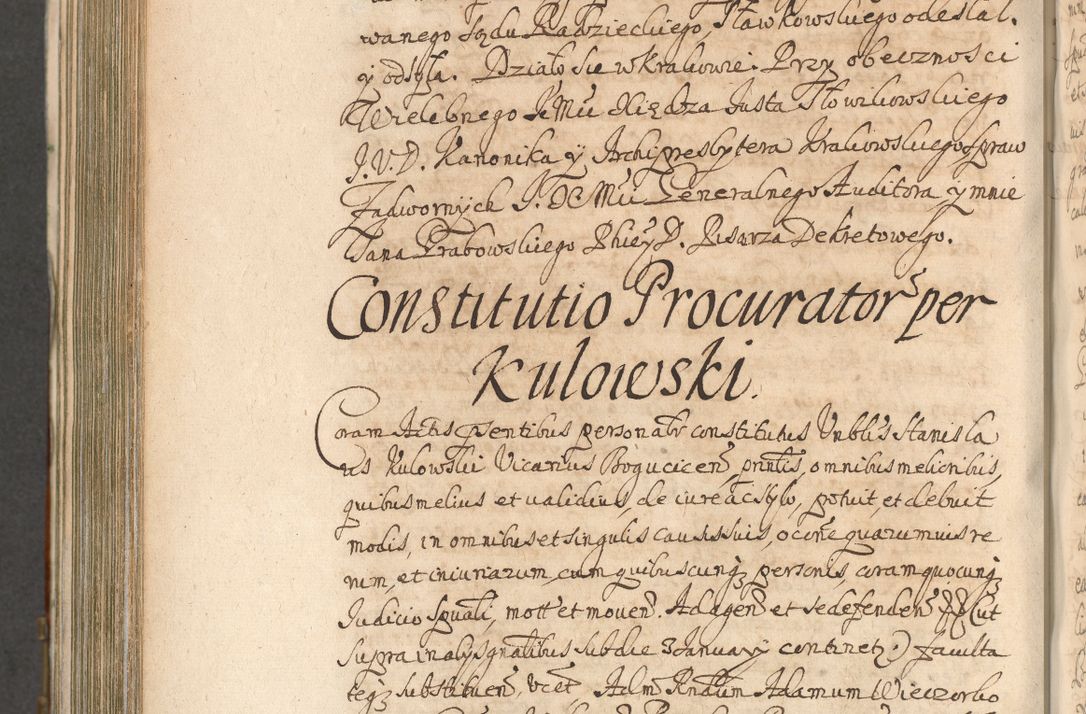 wanego Sądu Radzieckiego, Sławkowskiego odesłał.
y odsyła. Działo się w Krakowie. Przy obecznosci
Wielebnego JeMci Xiędza Justa Słowikowskiego
J.V.D. Kanonika y Archipresbytera Krakowskiego Spraw
Zadwornych J. Mci Generalnego Auditora y mnie
Jana Grabowskiego Phiey D. Pisarza Dekretowego.
Constitutio Procurator̃ per
Kulowski.
Coram Actis p̃sentibus personalr̃ constitutus Vnbl̃is Stanisla
us Kulowski Vicarius Bogucicen̄ prñtis, omnibus melioribus,
quibus melius et validius, de iure ac stylo, potuit, et debuit
modis, in omnibus et singulis causis suis, occ̃ne quarumuis re
rum, et iniuriarum, cum quibuscunq; personis, coram quocunq;
Iudicio Spuali, mott̃ et mouen̄. Ad agen̄ et se defenden̄ (ut
supra in alys gñalibus sub die 3 January continet.) faculta
teq; substituen̄, vcet Adm̃ Rndum Adamum Wieczorko